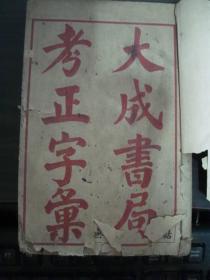 大成書局
考正字彙